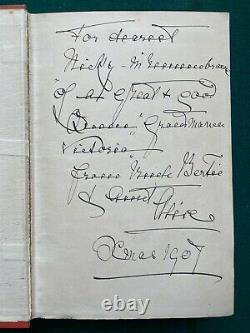 For dearest
Nicky - in remembrance
"of a" great & good
"Queen" Grandmama
Victoria
from Uncle Bertie
& Aunt Alix
Xmas 1907